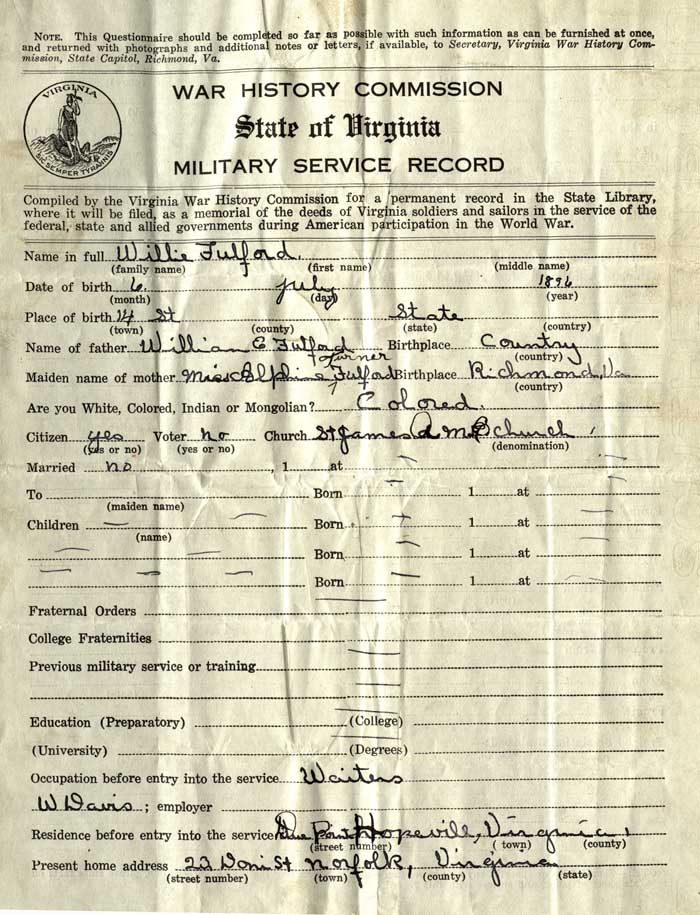 NOTE. This Questionnaire should be completed so far as possible with such information as can be furnished at once,
and returned with photographs and additional notes or letters, if available, to Secretary, Virginia War History Com-
mission, State Capitol, Richmond, Va.
VIRGINIA
SIC SEMPER TYRANNIS
WAR HISTORY COMMISSION
State of Virginia
MILITARY SERVICE RECORD
Compiled by the Virginia War History Commission for a permanent record in the State Library,
where it will be filed, as a memorial of the deeds of Virginia soldiers and sailors in the service of the
federal, state and allied governments during American participation in the World War.
Name in full Willie Fulford.
(family name) (first name) (middle name)
Date of birth 6. July 1896
(month) (day) (year)
Place of birth 14 St State
(town) (county) (state) (country)
Name of father William E Fulford Birthplace Country
(country)
Turner
Maiden name of mother Miss Fulford Birthplace Richmond, Va
(country)
Are you White, Colored, Indian or Mongolian? Colored.
Citizen yes Voter no Church St James A M E church
(yes or no) (yes or no) (denomination)
Married no , 1 at
To Born 1 at
(maiden name)
Children Born 1 at
(name)
Born 1 at
Born 1 at
Fraternal Orders
College Fraternities
Previous military service or training
Education (Preparatory) (College)
(University) (Degrees)
Occupation before entry into the service Waiters
W Davis ; employer
Residence before entry into the service Point Hopevill, Virginia,
(street number) (town) (county)
Present home address 23 St Norfolk, Virginia
(street number) (town) (county) (state)